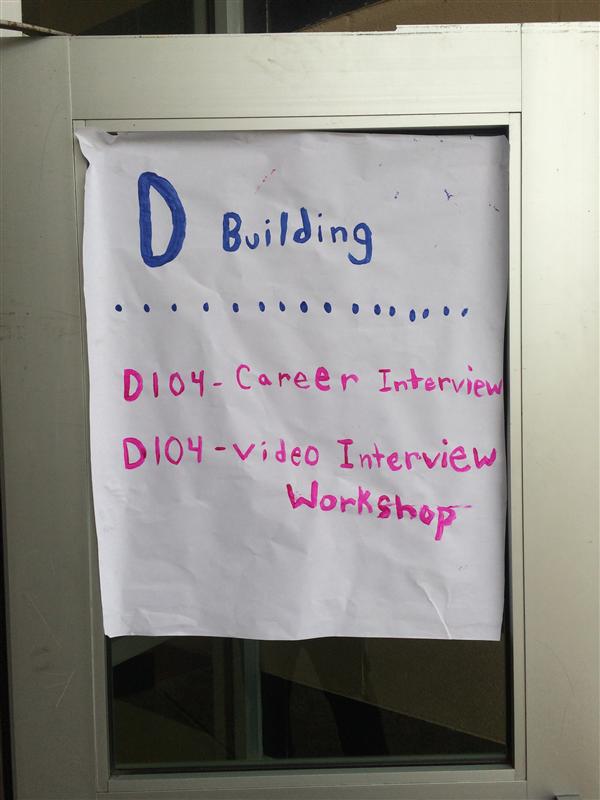 D Building
................
D104-Career Interview
D104-Video Interview
Workshop